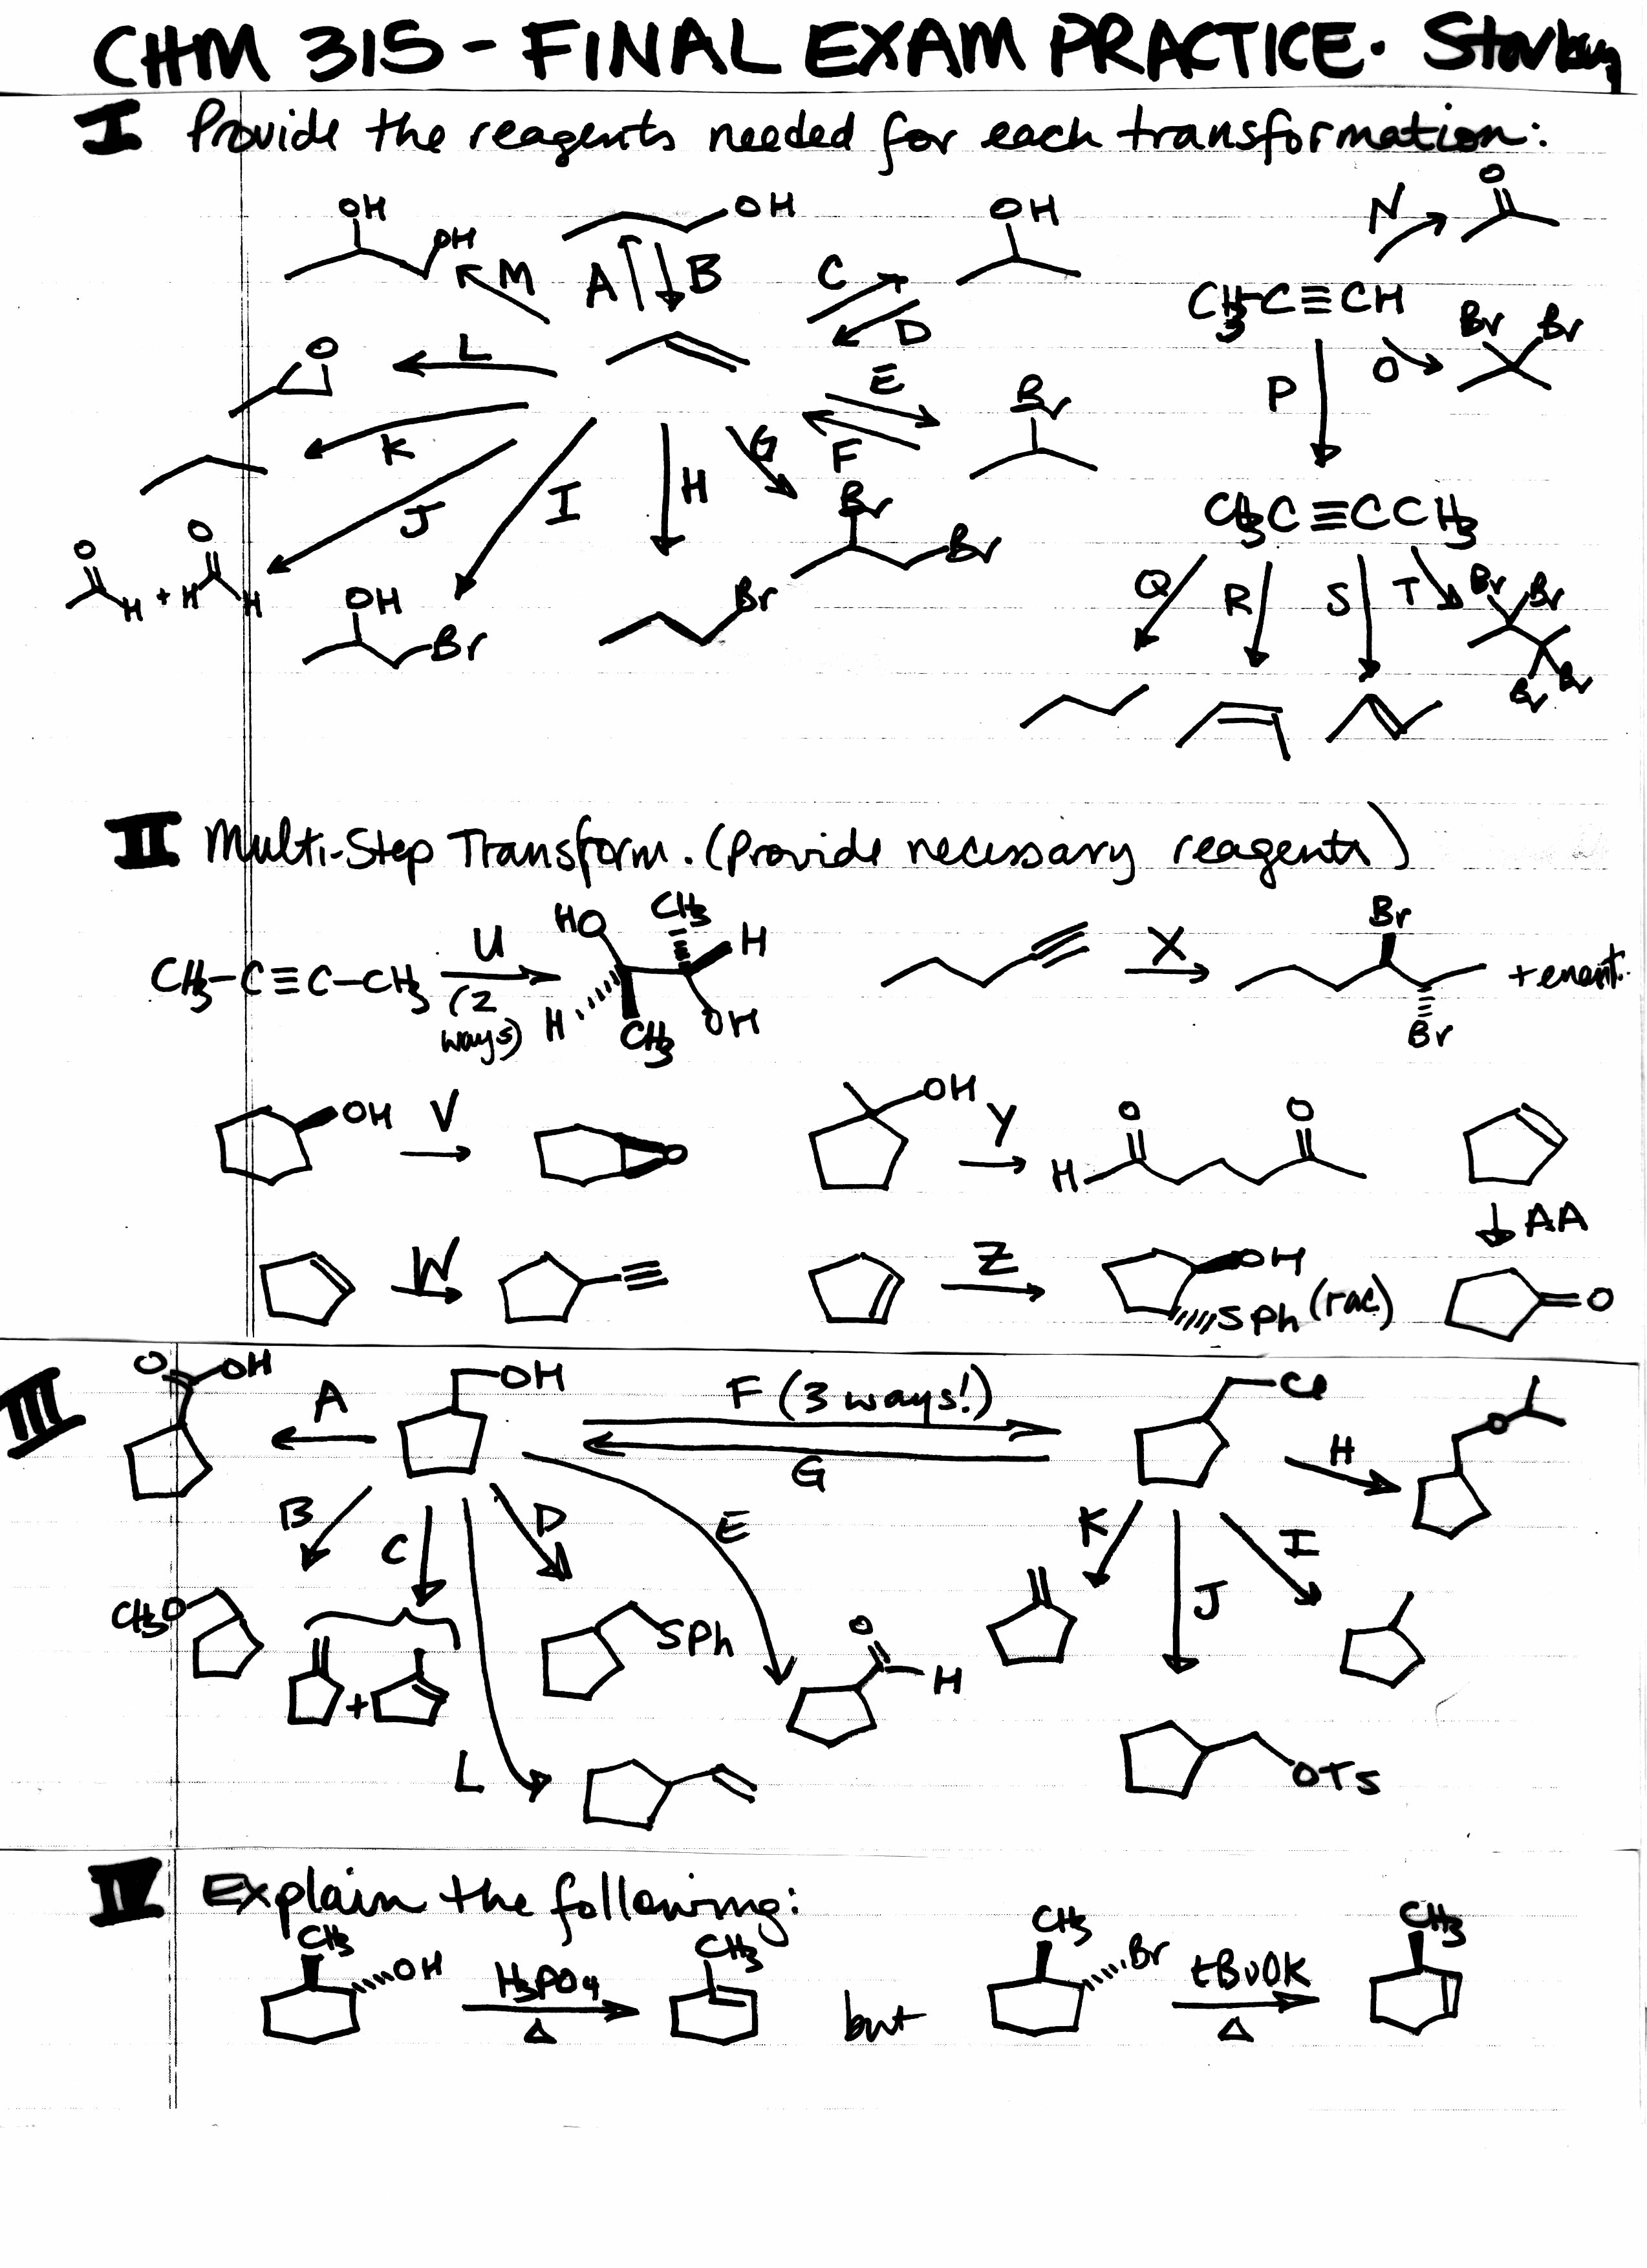 CHM 315 - FINAL EXAM PRACTICE.
I Provide the reagents needed for each transformation:
OH
OH
M
OH
A
B
C
D
OH
N
O
CH3-C≡CH
O
Br Br
P
L
O
E
F
Br
K
J
I
H
G
Br
Br
O
H
+
O
H
H
OH
Br
Br
CH3C≡CCH3
Q
R
S
T
Br
Br
Br
Br
II Multi-Step Transform. (Provide necessary reagents)
CH3-C≡C-CH3
U
(2 ways)
HO
CH3
H
H
CH3
OH
X
Br
Br
+enant.
OH
V
O
OH
Y
O
H
O
AA
O
W
Z
OH
SPh (rac)
III
O
OH
A
OH
F (3 ways!)
G
Cl
H
O
B
C
D
E
K
J
I
CH3O
+
SPh
O
H
L
OTs
IV Explain the following:
CH3
OH
H3PO4
Δ
CH3
but
CH3
Br
tBuOK
Δ
CH3